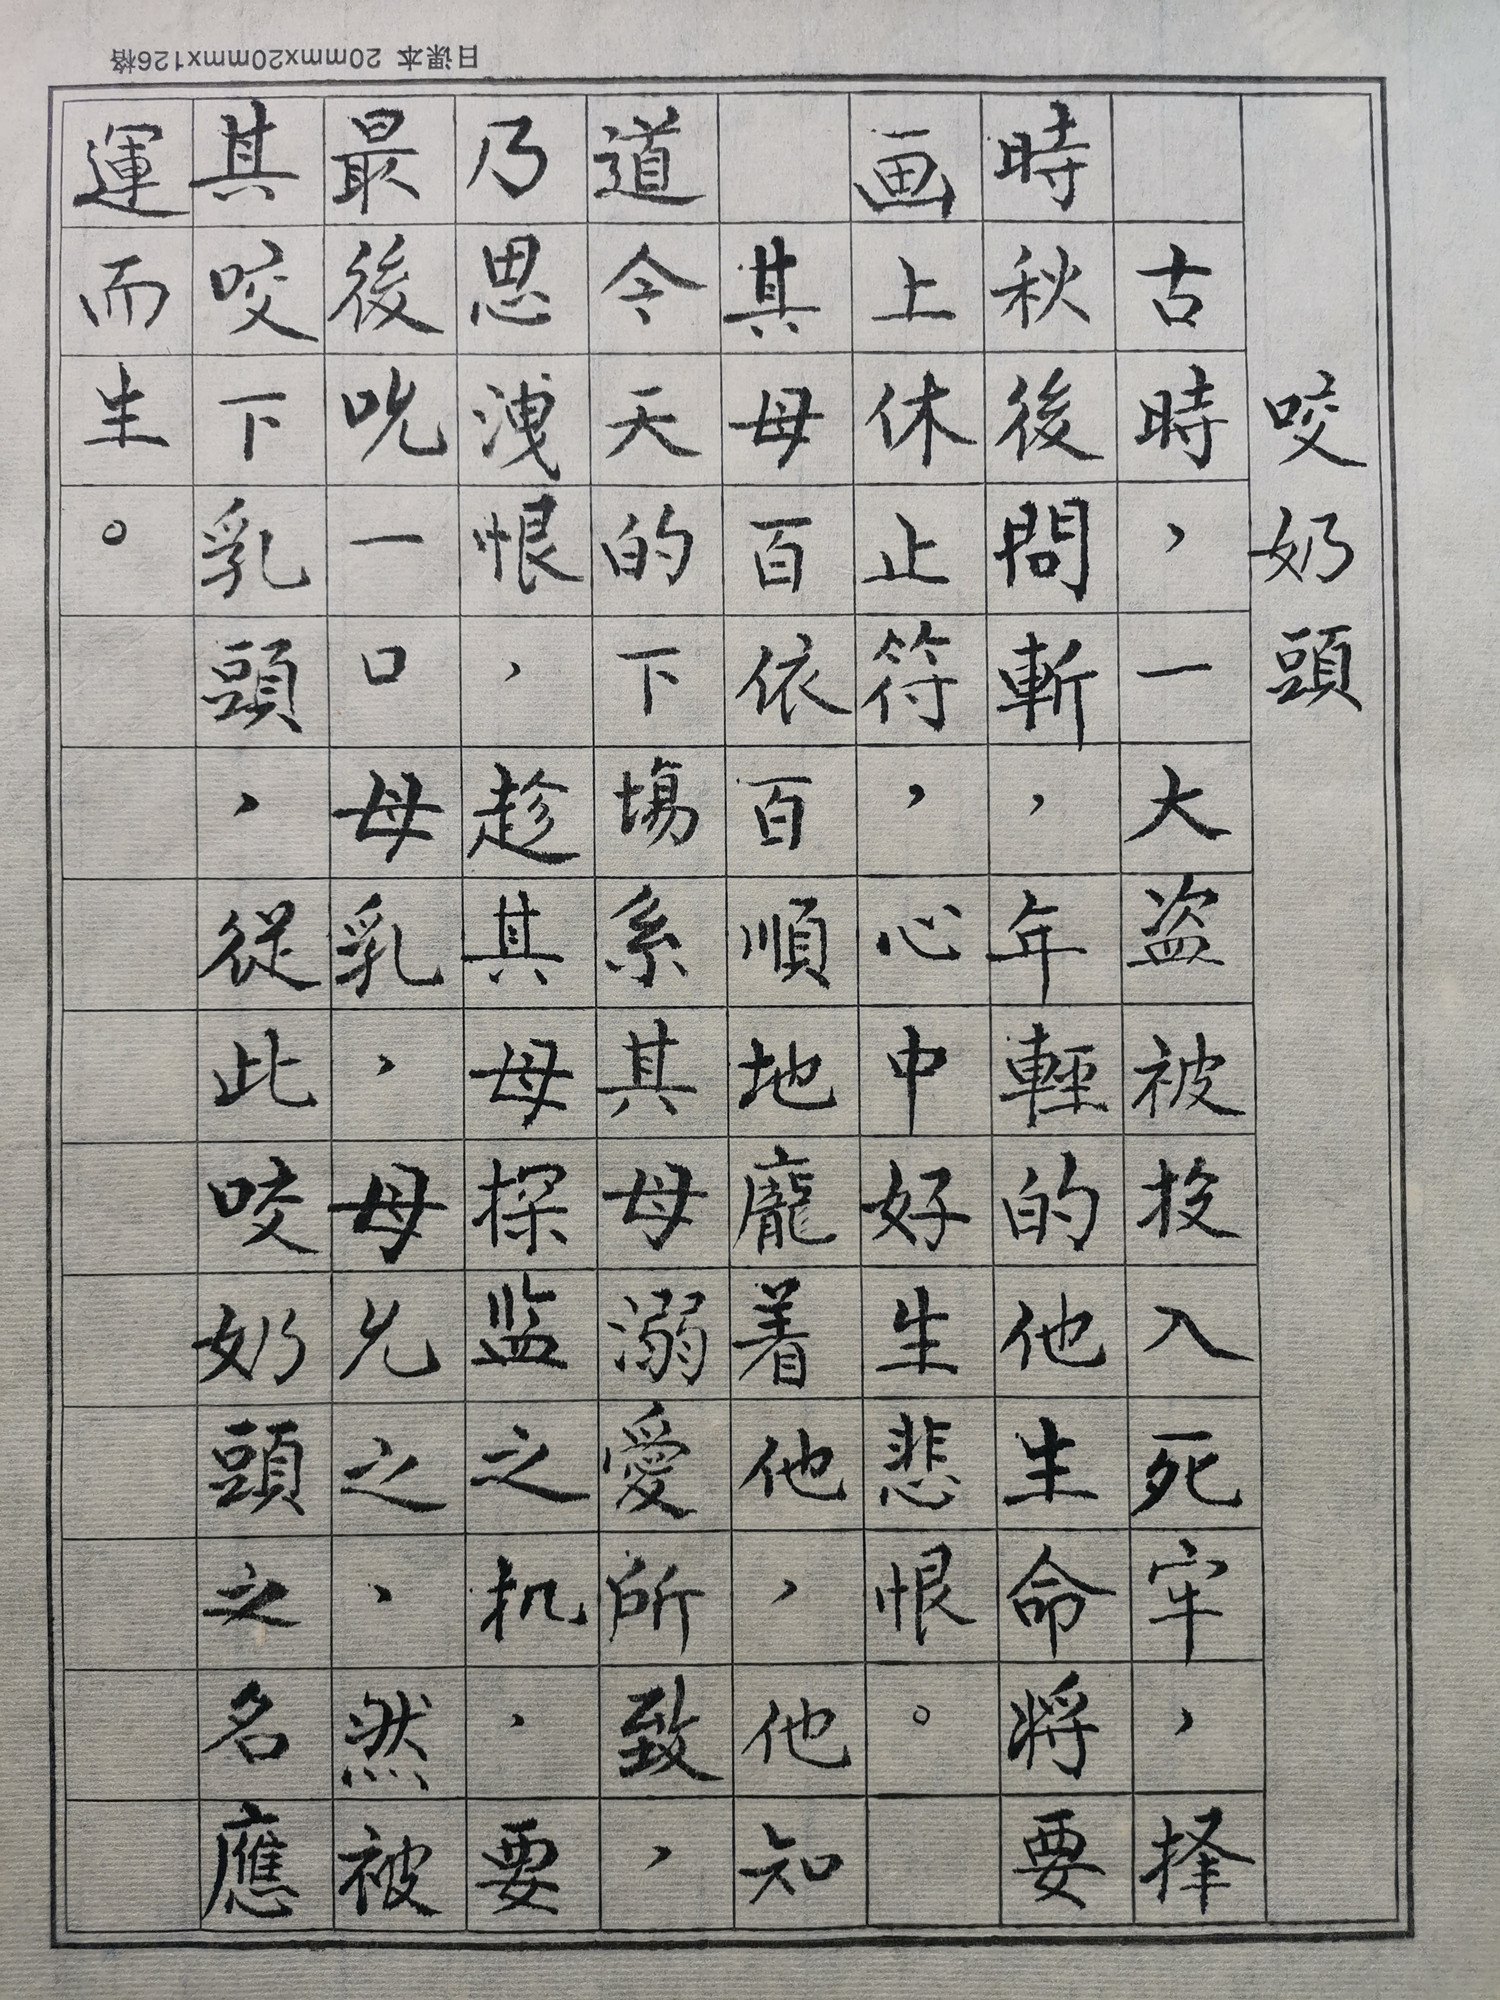 日课本 20mmx20mmx126格
咬奶頭
古時，一大盗被投入死牢，择
時秋後問斬，年輕的他生命将要
画上休止符，心中好生悲恨。
其母百依百順地龐着他，他知
道今天的下場系其母溺愛所致，
乃思洩恨，趁其母探监之机，要
最後吮一口母乳，母允之，然被
其咬下乳頭，從此咬奶頭之名應
運而生。